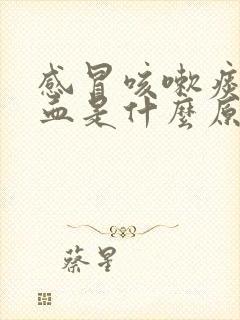 感冒咳嗽痰
血是什麼原
蔡星